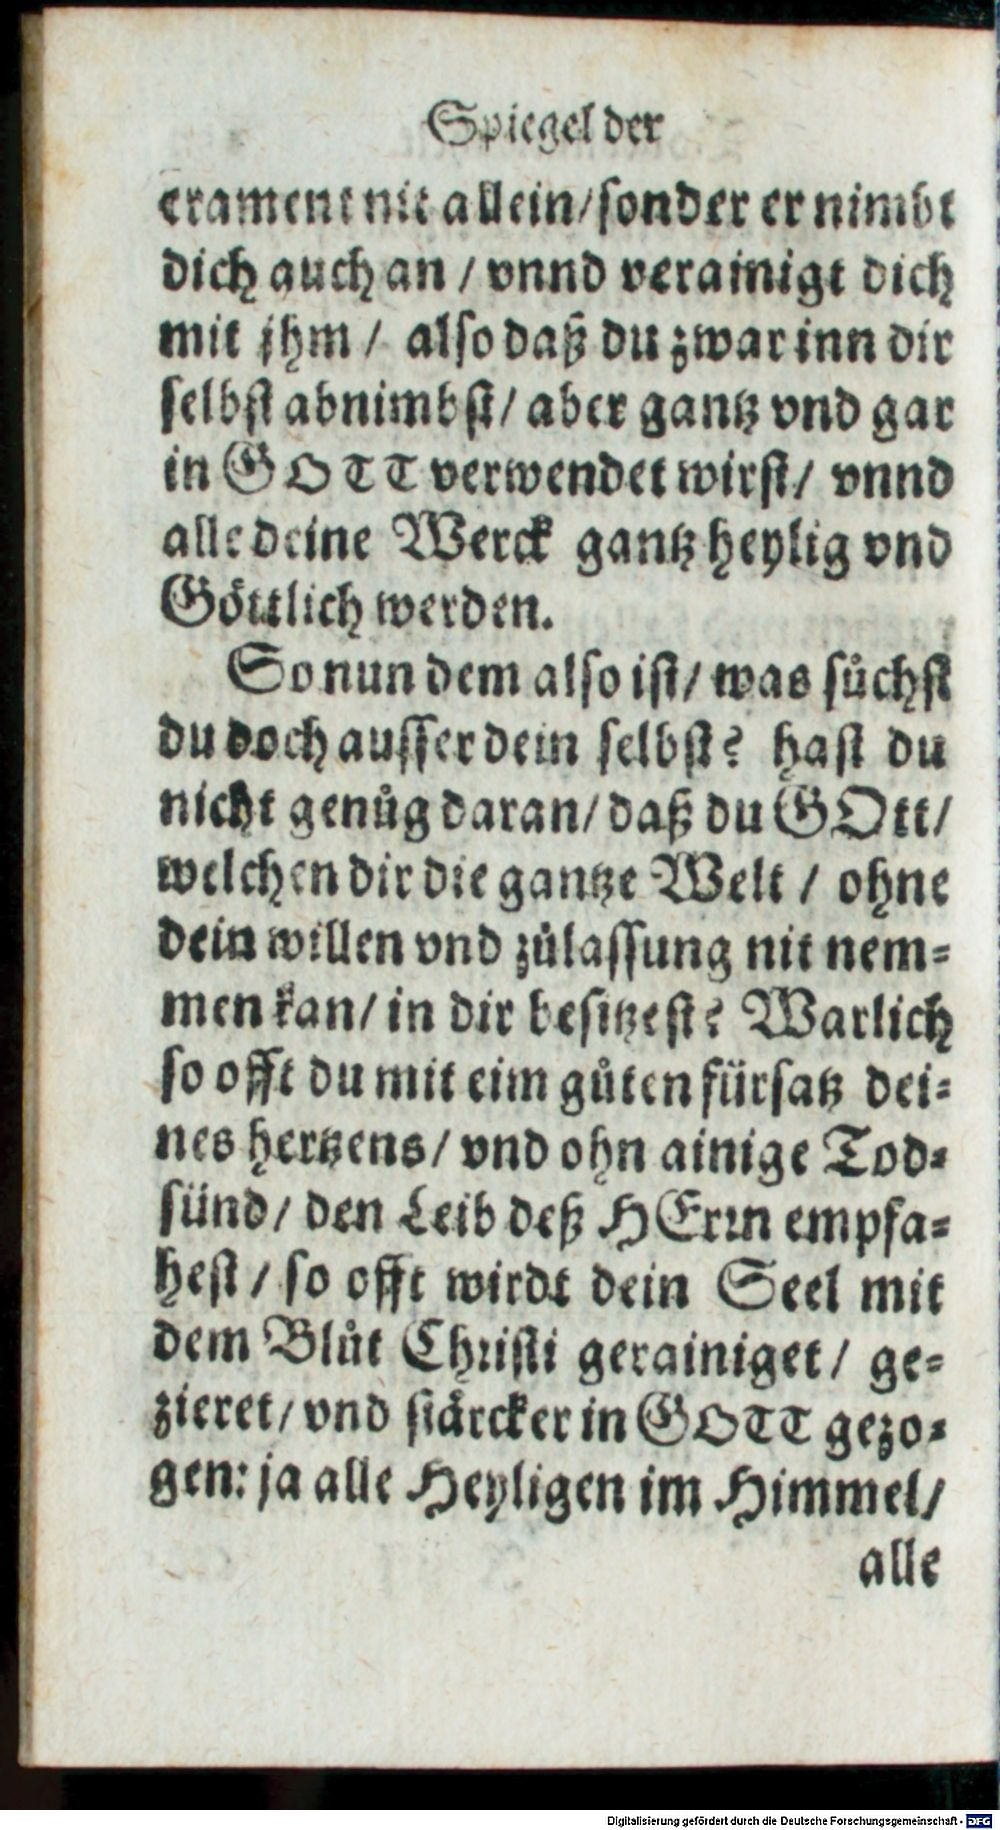 Spiegel der
crament nit allein/sonder er nimbt
dich auch an / vnnd verainigt dich
mit jhm / also daß du zwar inn dir
selbst abnimbst/ aber gantz vnd gar
in GOTT verwendet wirst/ vnnd
alle deine Werck gantz heylig vnd
Göttlich werden.
So nun dem also ist/ was suͦchst
du doch ausser dein selbst? hast du
nicht genuͦg daran/ daß du GOtt/
welchen dir die gantze Welt / ohne
dein willen vnd zuͦlassung nit nem-
men kan/ in dir besitzest? Warlich
so offt du mit eim guͦten fürsatz dei-
nes hertzens/ vnd ohn ainige Tod-
sünd/ den Leib deß HErrn empfa-
hest / so offt wirdt dein Seel mit
dem Bluͦt Christi gerainiget/ ge-
zieret/ vnd stärcker in GOTT gezo-
gen: ja alle Heyligen im Himmel/
alle
Digitalisierung gefördert durch die Deutsche Forschungsgemeinschaft - DFG